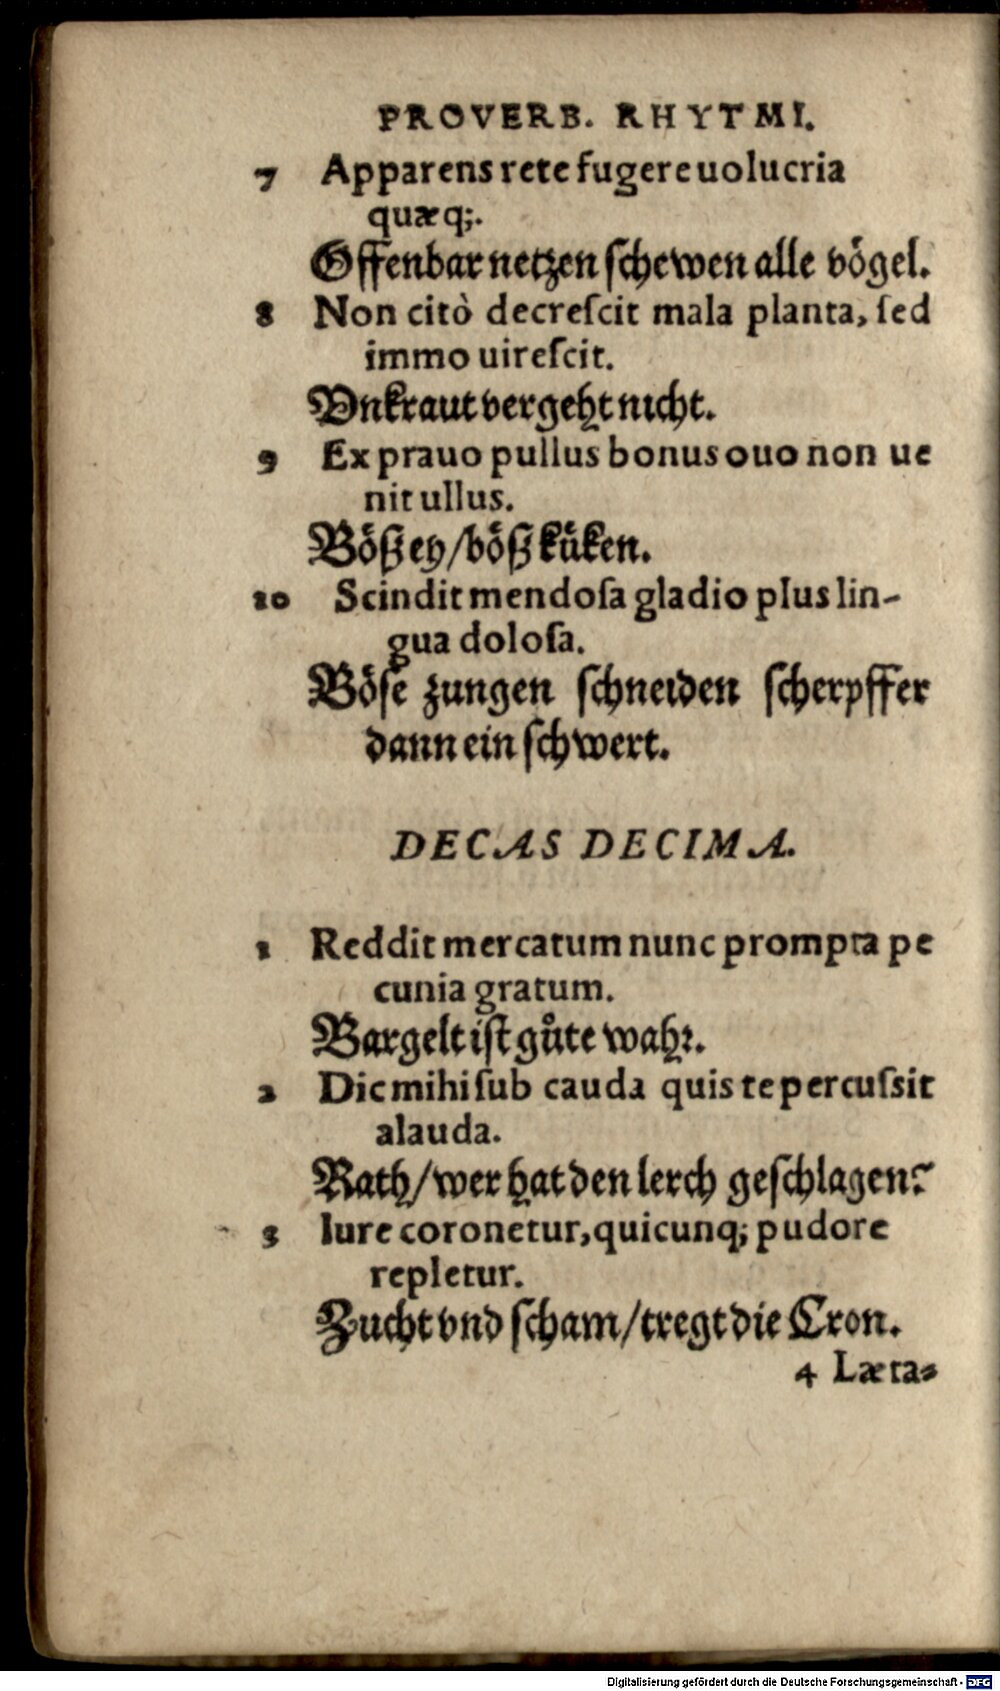 PROVERB. RHYTMI.
7 Apparens rete fugere uolucria
quæq;.
Offenbar netzen schewen alle vögel.
8 Non citò decreſcit mala planta, ſed
immo uireſcit.
Vnkraut vergeht nicht.
9 Ex prauo pullus bonus ouo non ue
nit ullus.
Bößey/böß küken.
10 Scindit mendoſa gladio plus lin-
gua doloſa.
Böſe zungen ſchneiden ſcherpffer
dann ein ſchwert.
DECAS DECIMA.
1 Reddit mercatum nunc prompta pe
cunia gratum.
Bargelt iſt gůte wahr.
2 Dic mihi ſub cauda quis te percuſsit
alauda.
Rath/wer hat den lerch geſchlagen?
3 Iure coronetur, quicunq; pudore
repletur.
Zucht vnd ſcham/tregt die Cron.
4 Læta-
Digitalisierung gefördert durch die Deutsche Forschungsgemeinschaft - DFG